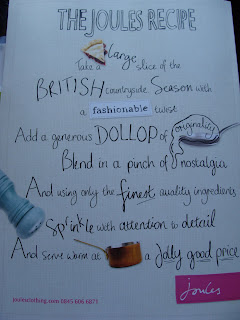 THE JOULES RECIPE
Take a Large slice of the
BRITISH countryside Season with
a fashionable twist
Add a generous DOLLOP of originality
Blend in a pinch of nostalgia
And using only the finest quality ingredients
Sprinkle with attention to detail
And serve warm at a Jolly good price
joules
joulesclothing.com 0845 606 6871